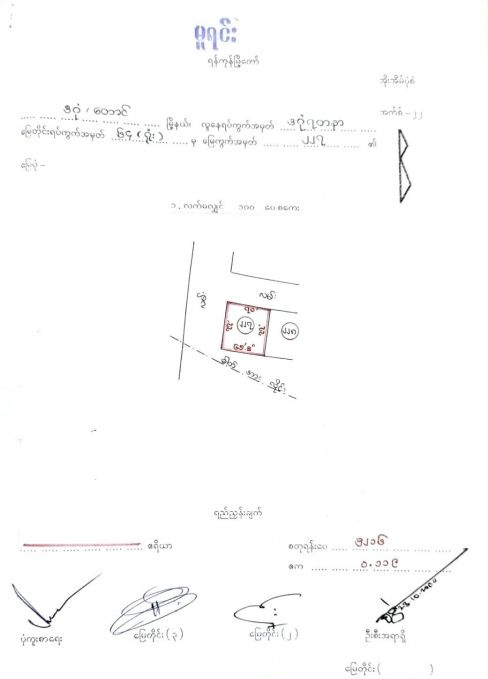 မူရင်း
ရန်ကုန်မြို့တော်
အိုးအိမ်ပုံစံ
အက်စ် - ၂၂
ဒဂုံ/တောင် မြို့နယ်၊ လူနေရပ်ကွက်အမှတ် ဒဂုံရတနာ
မြေတိုင်းရပ်ကွက်အမှတ် ၆၄ (ရုံး) မှ မြေကွက်အမှတ် ၂၂၇ ၏
မြေပုံ -
၁. လက်မလျှင် ၁၀၀ ပေစကေး
လမ်း
၇၀'
၂၂၇
၂၂၈
ဓါတ် အား လိုင်း
ရည်ညွှန်းချက်
ဧရိယာ
စတုရန်းပေ ၅၂၁၆
ဧက ၀.၁၁၉
23.10.2000
ပုံကူးစာရေး
မြေတိုင်း (၃)
မြေတိုင်း (၂)
ဦးစီးအရာရှိ
မြေတိုင်း ( )